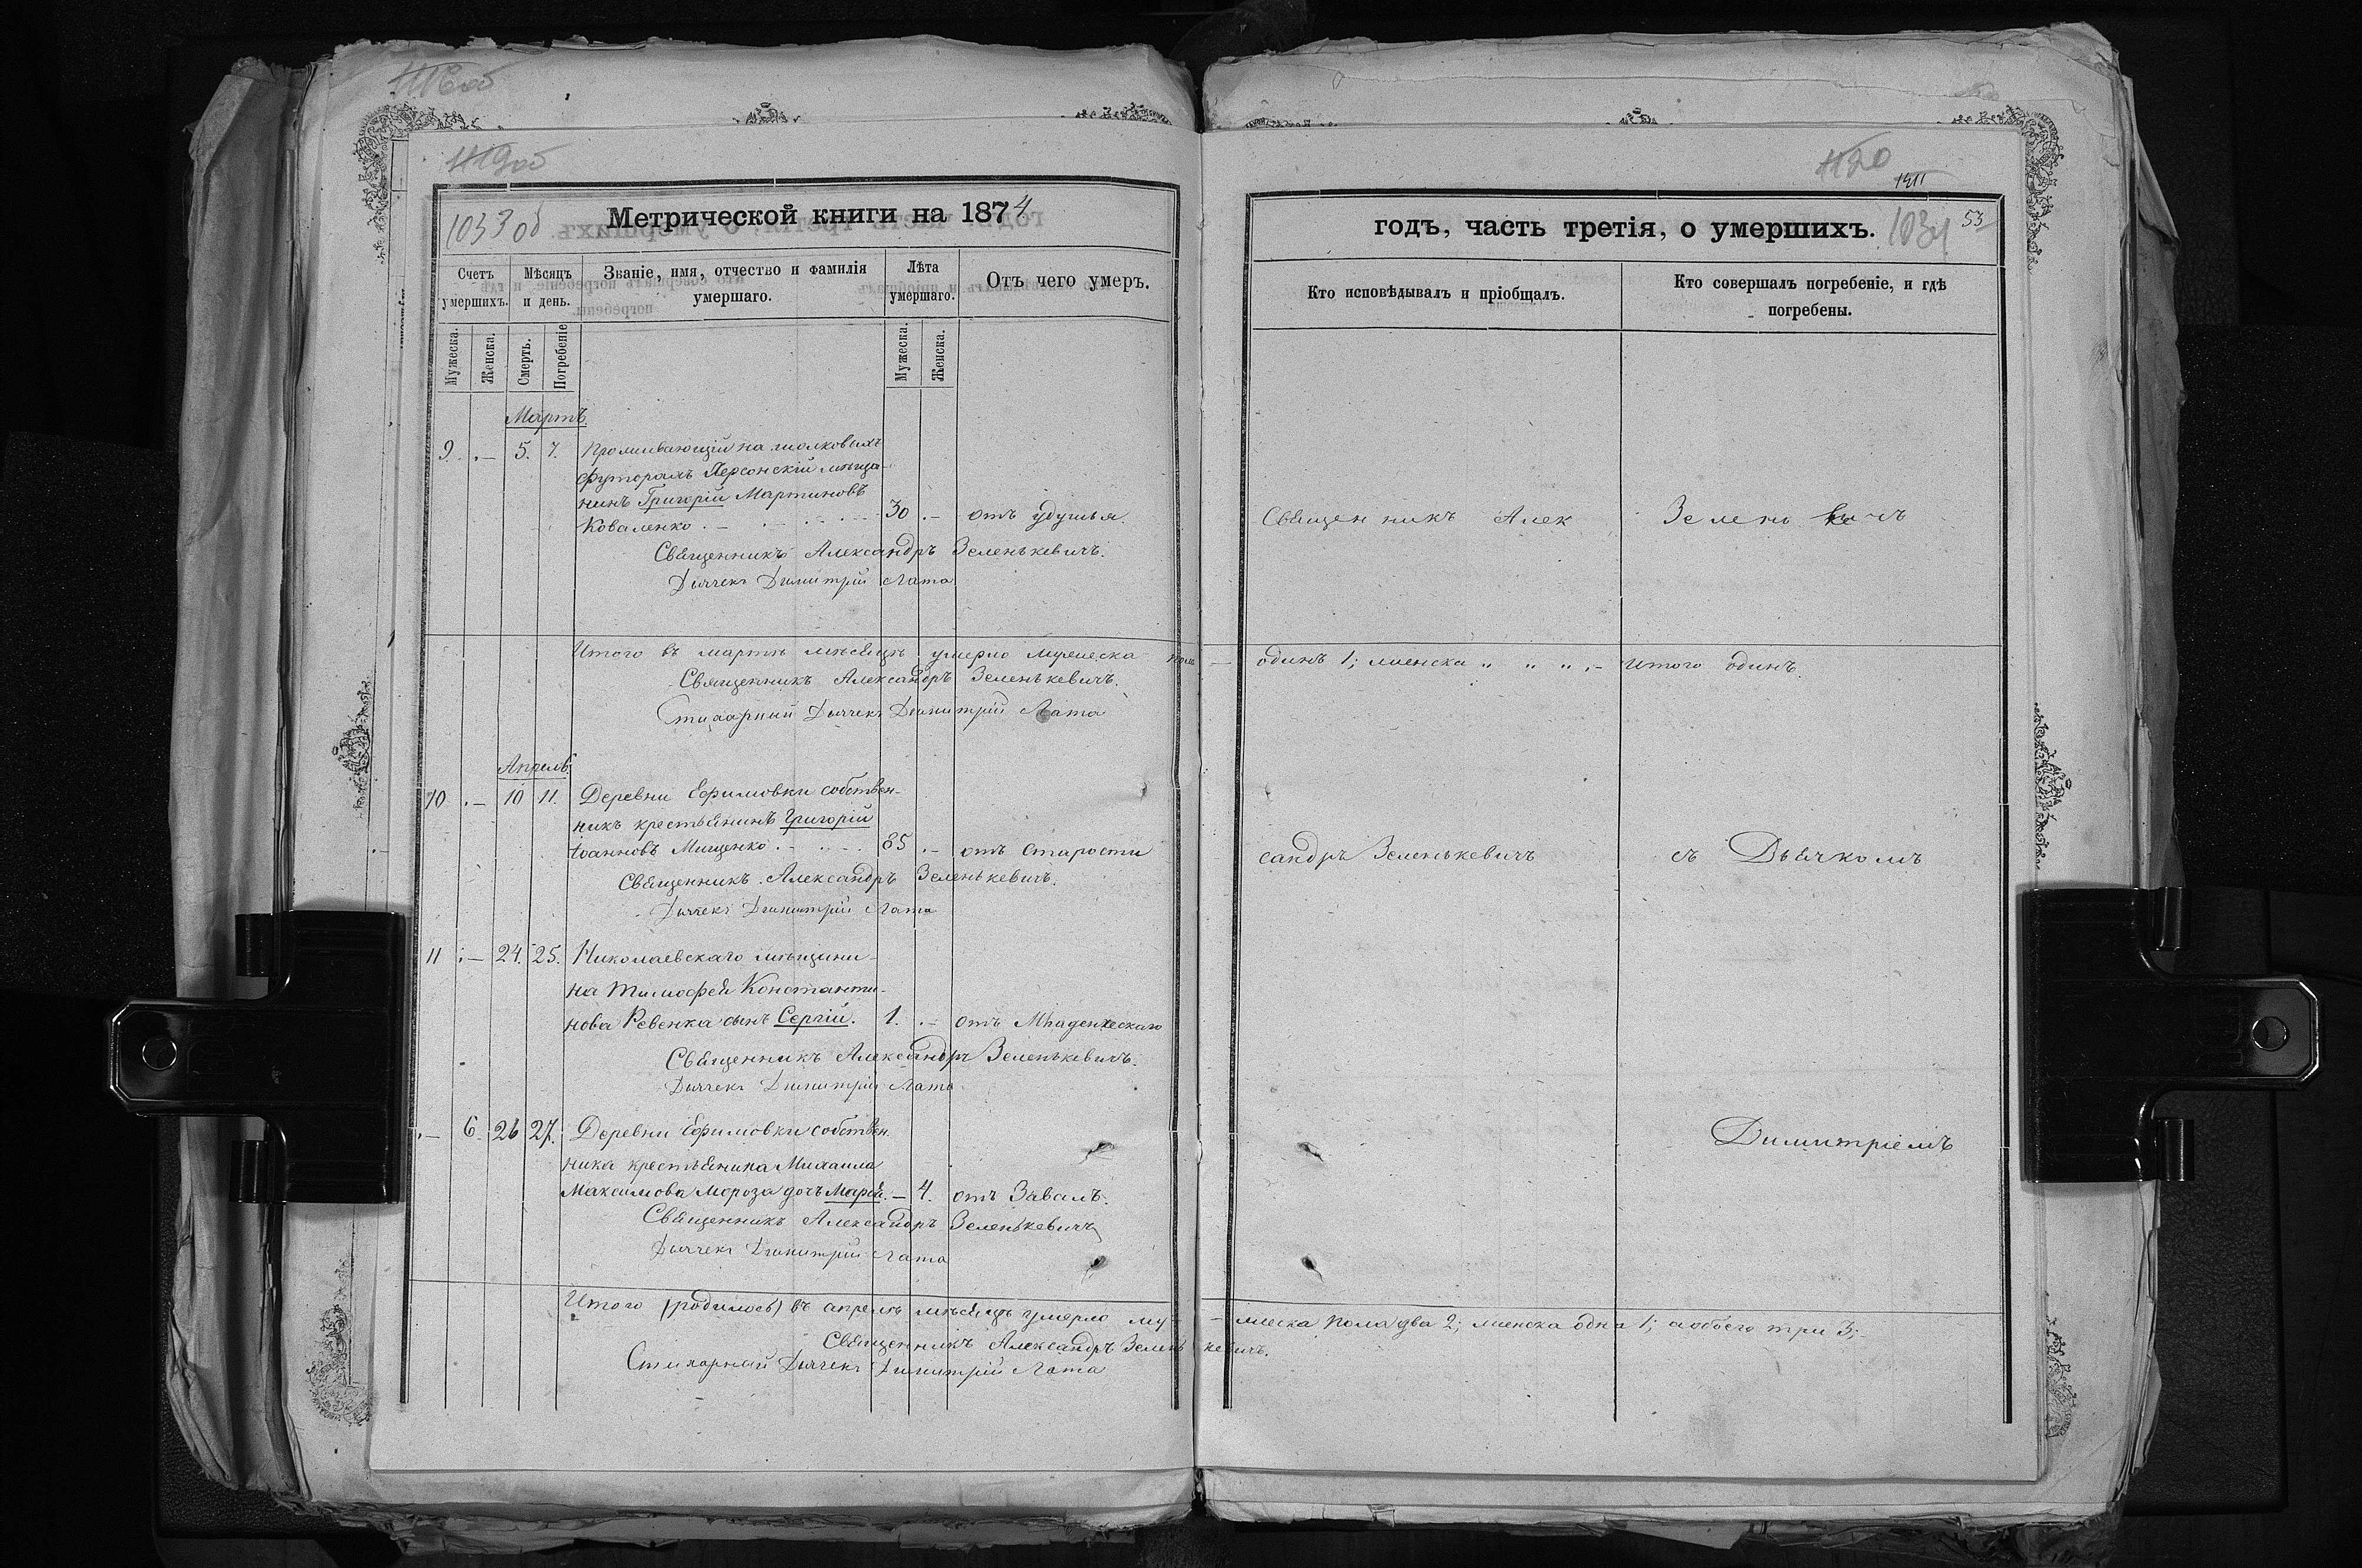 1119об
1120
1033об
Метрической книги на 1874
годъ, часть третія, о умершихъ.
1034
53
Счетъ умершихъ.
Мѣсяцъ и день.
Званіе, имя, отчество и фамилія умершаго.
Лѣта умершаго.
Отъ чего умеръ.
Кто исповѣдывалъ и пріобщалъ.
Кто совершалъ погребеніе, и гдѣ погребены.
Мужеска.
Женска.
Смерть.
Погребеніе
Мужеска.
Женска.
Мартъ.
9. . — 5. 7. Проживающій на
футорахъ Херсонскій мѣща-
нинъ Григорій Мартиновъ
Коваленко . — . — 30 . — отъ удушья.
Священникъ Александръ Зеленькевичъ.
Дьячекъ Димитрій Лата
Священникъ Алек
Зелень вичъ
Итого въ мартѣ мѣсяцѣ умерло мужеска пола — одинъ 1; женска „ „ „ ; — Итого одинъ.
Священникъ Александръ Зеленькевичъ.
Стихарный Дьячекъ Димитрій Лата
Апрель.
10 . — 10 11. Деревни Ефимовки собствен-
никъ крестьянинъ Григорій
Іоанновъ Мищенко . — 85 . — отъ старости
Священникъ Александръ Зеленькевичъ.
Дьячекъ Димитрій Лата
сандръ Зеленькевичъ
съ Дьячкомъ
11 . — 24. 25. Николаевскаго мѣщани-
на Тимофей Константи-
нова Ревенка сынъ Сергій. 1. . — отъ Младенческаго
Священникъ Александръ Зеленькевичъ.
Дьячекъ Димитрій Лата
. — 6. 26 27. Деревни Ефимовки собствен.
ника крестьянина Михаила
Максимова Мороза дочь Марія. — 4. отъ Завалъ.
Священникъ Александръ Зеленькевичъ
Дьячекъ Димитрій Лата
Димитріемъ
Итого (родилось) въ апрелѣ мѣсяцѣ умерло му- — жеска пола два 2; женска одна 1; а обоего три 3; —
Священникъ Александръ Зеленькевичъ.
Стихарный Дьячекъ Димитрій Лата